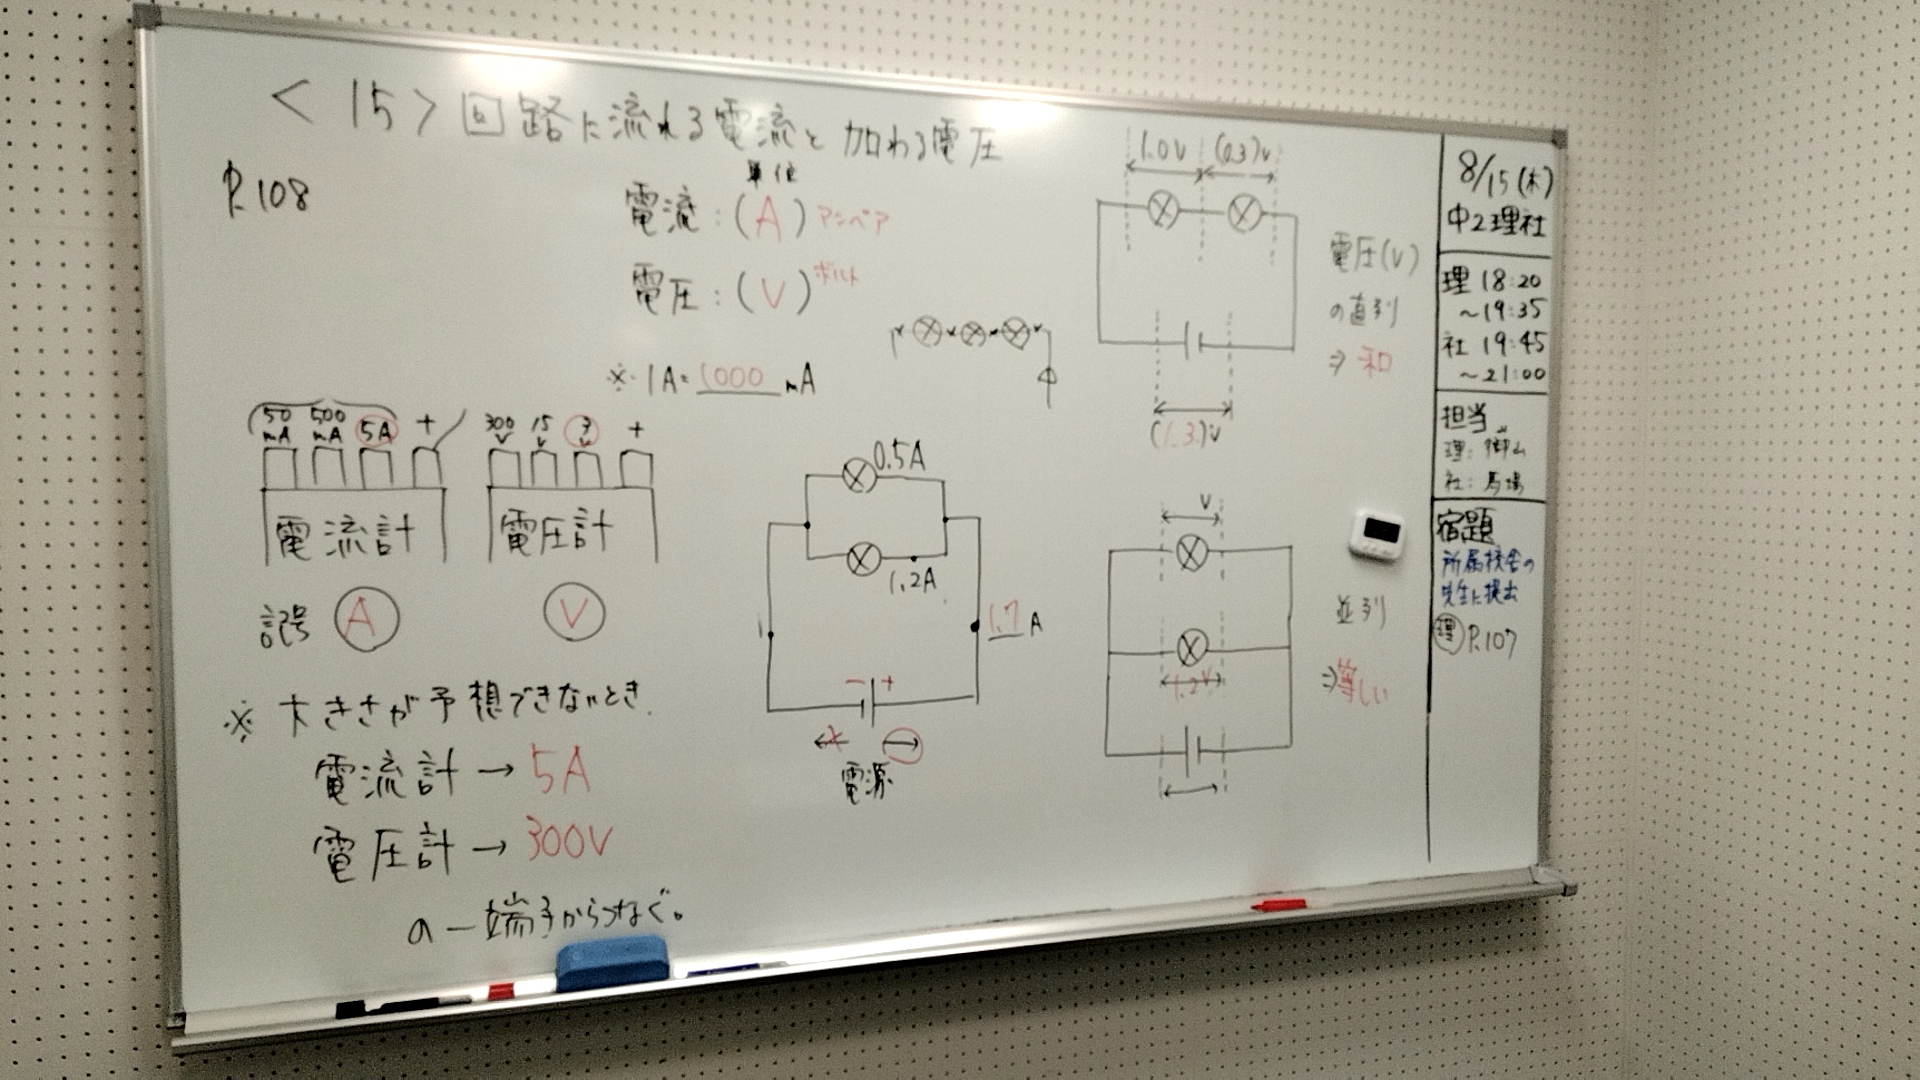 <15>回路に流れる電流と加わる電圧
P.108
単位
電流:(A)アンペア
電圧:(V)ボルト
※1A=1000mA
50mA 500mA 5A +
電流計
300V 15V 3V +
電圧計
記号 A V
※大きさが予想できないとき
電流計→5A
電圧計→300V
の一端子からつなぐ。
0.5A
1.2A
1.7A
- +
電源
1.0V (0.3)V
(1.3)V
電圧(V)
の直列
⇒和
V
1.2V
並列
⇒等しい
8/15(木)
中2理社
理 18:20
~19:35
社 19:45
~21:00
担当
理:
社:馬場
宿題
所属校舎の
先生に提出
理 P.107